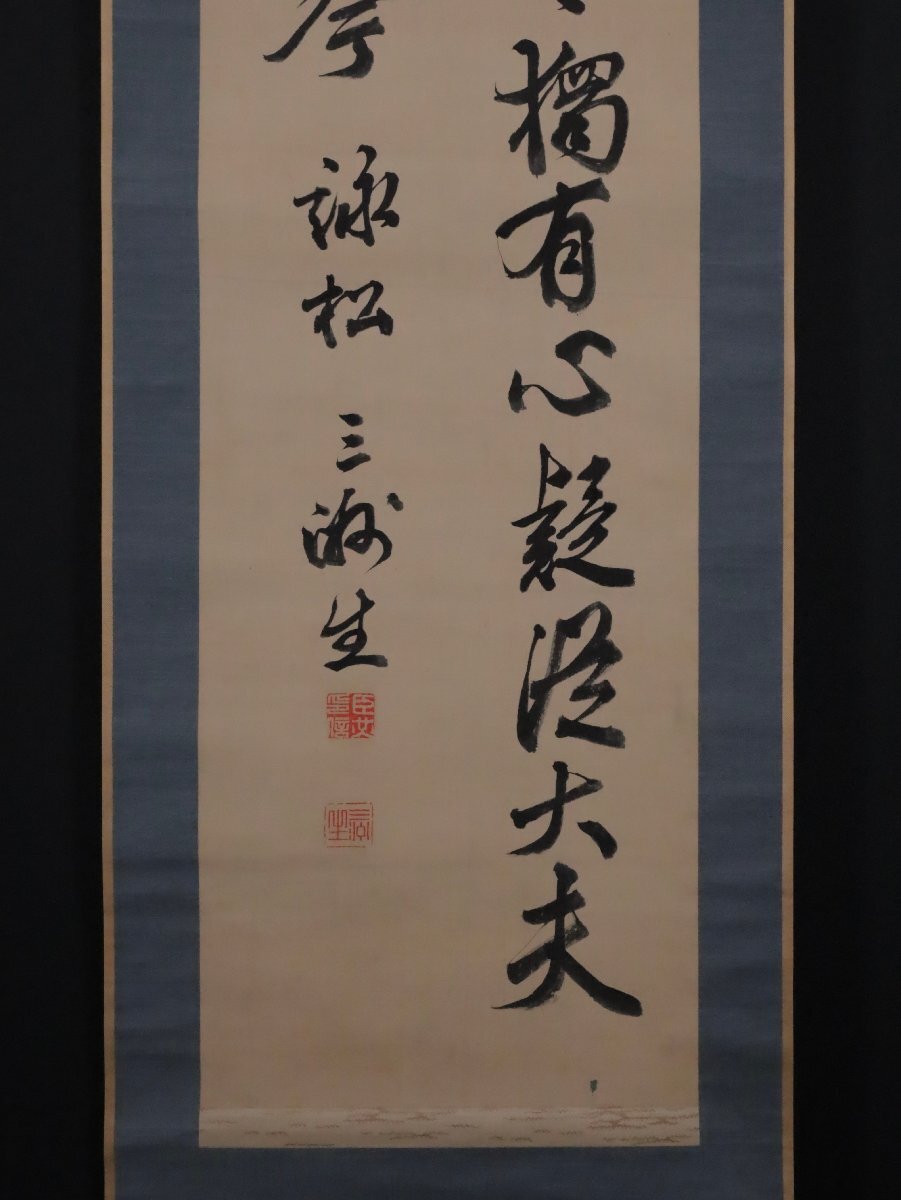 獨有心疑從大夫
詠松 三洲生